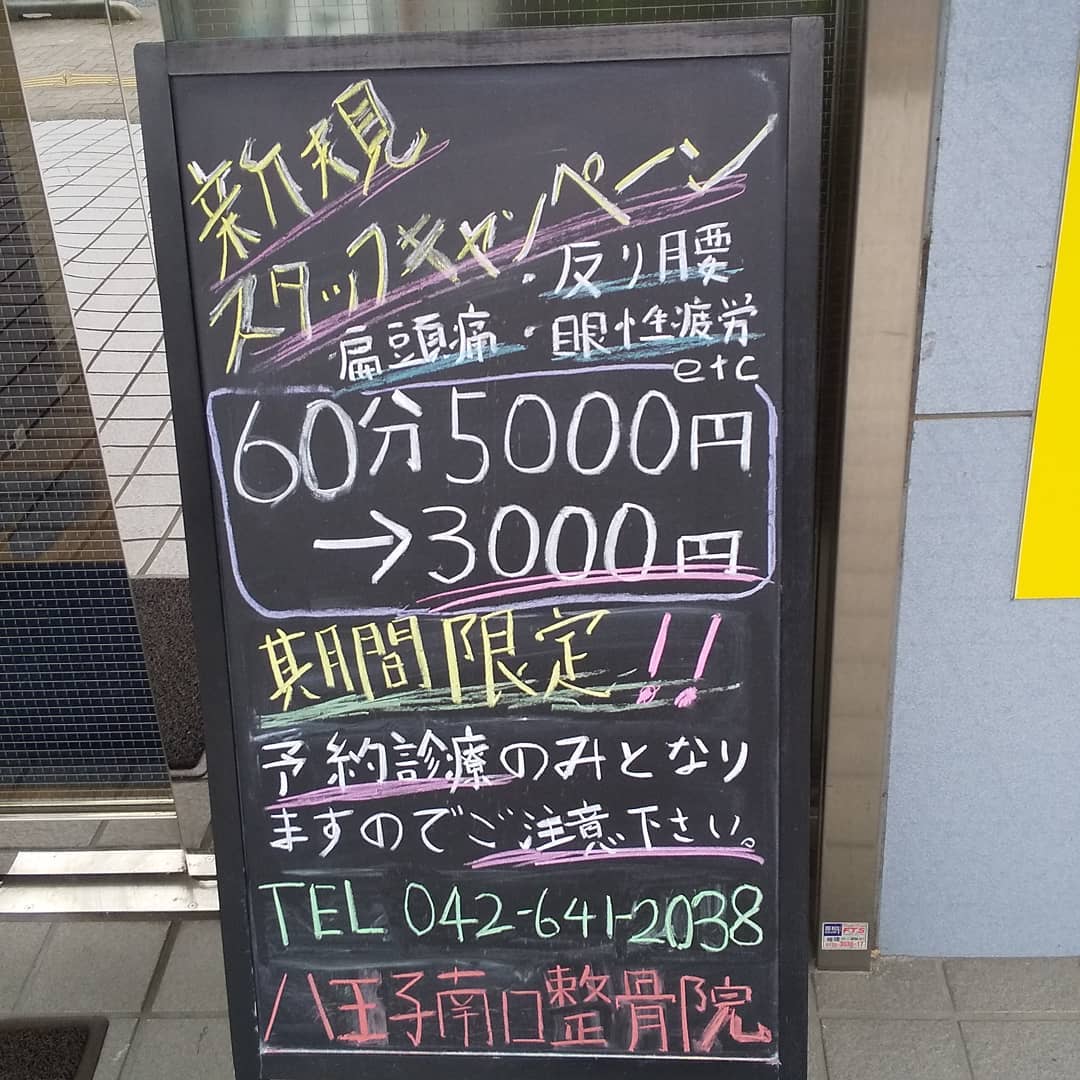 新規
スタッフキャンペーン
・反り腰
・扁頭痛・眼性疲労
etc
60分5000円
→3000円
期間限定!!
予約診療のみとなり
ますのでご注意下さい。
TEL 042-641-2038
八王子南口整骨院